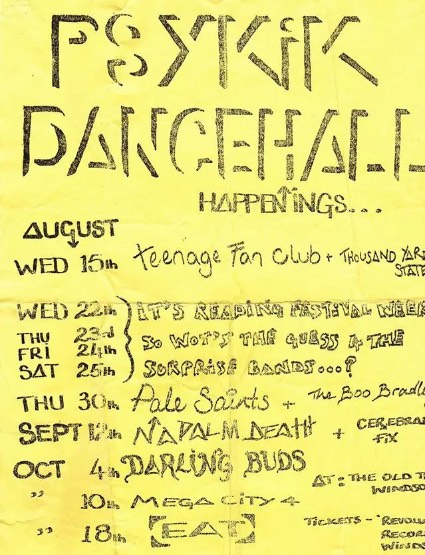 PSYKIK
DANCEHALL
HAPPENINGS...
AUGUST
WED 15th Teenage Fan Club + THOUSAND YAR
STATE
WED 22th IT'S READING FESTIVAL WEEK
THU 23rd SO WOT'S THE GUESS 4 THE
FRI 24th
SAT 25th SURPRISE BANDS...?
THU 30th Pale Saints + The Boo Bradle
SEPT 12th NAPALM DEATH + CEREBRAL
FIX
OCT 4th DARLING BUDS
AT: THE OLD T
WINDSO
" 10th MEGA CITY 4
" 18th [EAT] TICKETS - 'REVOLU
RECOR
WINDS